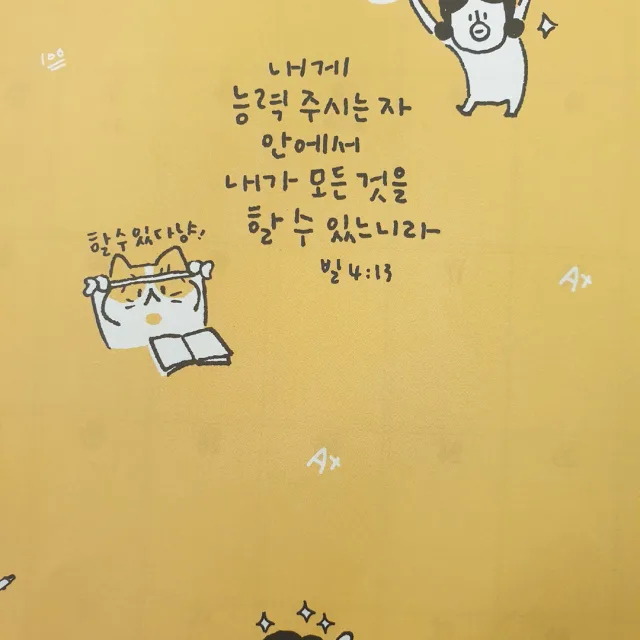 100
내게
능력 주시는 자
안에서
내가 모든 것을
할 수 있느니라
빌 4:13
할 수 있다냥!
A+
A+